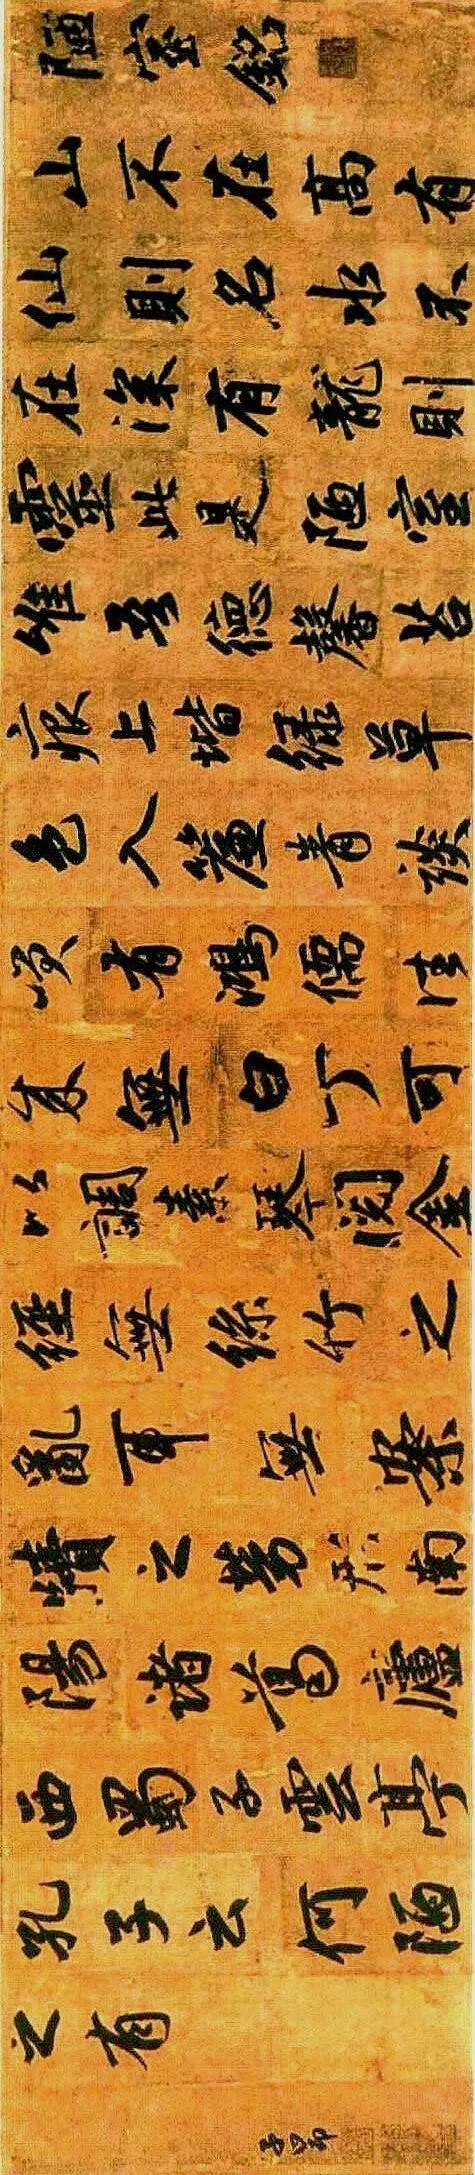 陋室銘
山不在高有
仙則名水不
在深有龍則
靈此是陋室
唯吾德馨苔
痕上堦緑草
色入簾青談
咲有鴻儒往
来無白丁可
以調素琴閲金
經無絲竹之
亂耳無案
牘之勞形南
陽諸葛廬
西蜀子雲亭
孔子云何陋
之有
子昂